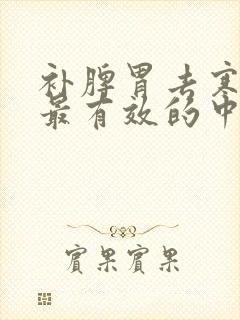 补脾胃去寒
最有效的中
宾果宾果